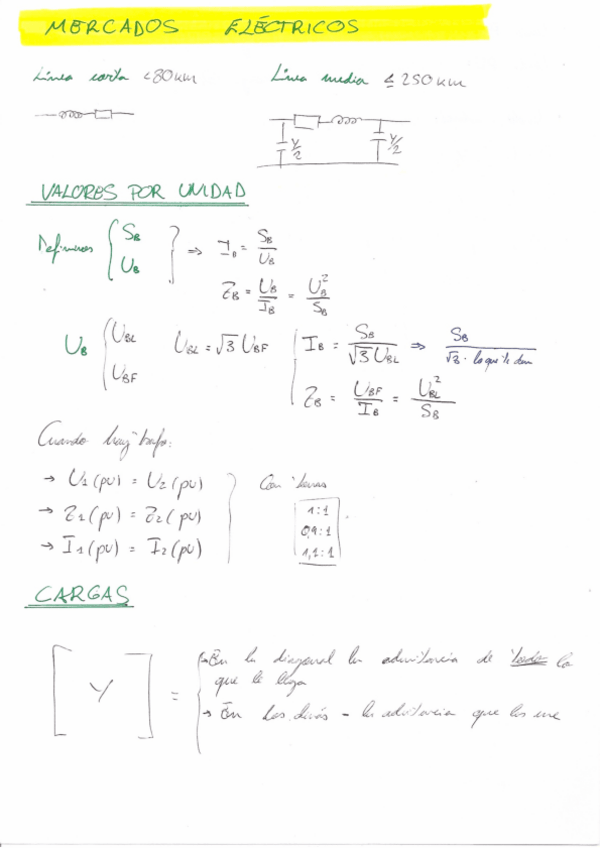 MERCADOS ELÉCTRICOS
Línea corta < 80 km Línea media ≤ 250 km
Y/2 Y/2
VALORES POR UNIDAD
Definimos { S_B U_B } ⇒ I_B = S_B / U_B
Z_B = U_B / I_B = U_B² / S_B
U_B { U_BL U_BF U_BL = √3 U_BF { I_B = S_B / √3 U_BL ⇒ S_B / √3 · lo que te dan
Z_B = U_BF / I_B = U_BL² / S_B
Cuando hay trafo:
→ U1 (pu) = U2 (pu) Con tomas
→ Z1 (pu) = Z2 (pu) 1:1
→ I1 (pu) = I2 (pu) 0,9:1
1,1:1
CARGAS
[ Y ] = { → En la diagonal la admitancia de lo
que le llega
→ En los demás - la admitancia que los une